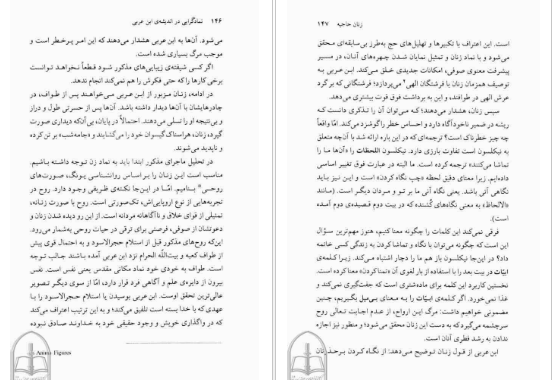 ۱۴۶ نمادگرایی در اندیشه‌ی ابن عربی
می‌شود. آن‌ها به ابن عربی هشدار می‌دهند که این امر پرخطر است و
موجب مرگ بسیاری شده است.
اگر کسی شیفته‌ی زیبایی‌های مذکور شود قطعاً نخواهد توانست
برخی کارها را که حتی فکرش را هم نمی‌کند انجام ندهد.
در ادامه، زنان مزبور از ابن عربی می‌خواهند پس از طواف، در
چادرهایشان با آن‌ها دیدار داشته باشد. آن‌ها پس از حسرتی طول و دراز
و بی‌نتیجه او را تسلی می‌دهند. احتمالاً در پایان، بی‌آنکه دیداری صورت
گیرد، زنان، هراسناک گیسوان خود را می‌گشایند و جامه‌شب، بر تن کرده
و ناپدید می‌شوند.
در تحلیل ماجرای مذکور ابتدا باید به نماد زن توجه داشته باشیم.
مناسب است این زنان را براساس روانشناسی یونگ، صورت‌های
روحی* بنامیم. امّا در این‌جا نکته‌ی ظریفی وجود دارد. روح در
تجربه‌هایی از نوع اروپایی‌اش، تک‌صورتی است. روح یا صورت زنانه،
تمثیلی از قوای خلاق و ناآگاهانه مردانه است. از این رو دیده شدن زنان و
دعوتشان از صوفی، فرصتی برای ترقی در حیات روحی به‌شمار می‌رود.
این‌که روح‌های مذکور قبل از استلام حجرالاسود و به احتمال قوی پیش
از طواف کعبه و بیت‌اللّه الحرام نزد ابن عربی آمده باشند جالب توجه
است. طواف به خودی خود نماد مکانی مقدس یعنی نفس است. نفس
بیرون از دایره‌ی علم و آگاهی فرد قرار دارد، امّا از سوی دیگر تصویر
عالی‌ترین تحقق اوست. ابن عربی بوسیدن یا استلام حجرالاسود را با
عهدی که با خدا بسته است تلفیق می‌کند؛ و به این ترتیب اعتراف می‌کند
که در واگذاری خویش و وجود حقیقی خود به خداوند صادق نبوده
Anima Figures
زنان حاجیه ۱۴۷
است. این اعتراف با تکبیرها و تهلیل‌های حج به‌طرز بی‌سابقه‌ای محقق
می‌شود و با نماد زنان و تمثیل نمایان شدن چهره‌های آنان، در مسیر
پیشرفت معنوی صوفی، امکانات جدیدی خلق می‌کند. ابن عربی به
توصیف همزمان زنان با فرشتگان الهی می‌پردازد؛ فرشتگانی که بر گرد
عرش الهی در طوافند، و این به برداشت فوق قوت بیشتری می‌دهد.
سپس زنان، هشدار می‌دهند؛ که می‌توان آن را دانست که
ریشه در ضمیر ناخودآگاه دارد و احساس خطر را گوشزد می‌کند. امّا واقعاً
چه چیز خطرناک است؟ ترجمه‌ای که در این باره ارائه شد با آن‌چه متعلق
به نیکلسون است تفاوت بارزی دارد. نیکلسون اللحظات را «آن‌ها ما را
تماشا می‌کنند» ترجمه کرده است. ما البته در عبارت فوق تغییر اساسی
داده‌ایم. زیرا معنای دقیق لحظه «چپ نگاه کردن» است و این نیز باید
نگاهی آنی باشد. یعنی نگاه آنی ما بر تو و مردان دیگر است. (مانند
«الالحاظ» به معنی نگاه‌های کُشنده که در بیت دوم قصیده‌ی دوم آمده
است)
فرقی نمی‌کند این کلمات را چگونه معنا کنیم، هنوز مهم‌ترین سؤال
این است که چگونه می‌توان با نگاه و تماشا کردن به زندگی کسی خاتمه
داد؟ در این‌جا نیکلسون باز هم ما را دچار اشتباه می‌کند. زیرا کلمه‌ی
در بیت بعد را با استفاده از بار لغوی آن «تمنا کردن» معنا کرده است.
نخستین کاربرد این کلمه برای ماده‌شتری است که جفت‌گیری نمی‌کند و
غذا نمی‌خورد. اگر کلمه‌ی را به معنای بی‌میل بگیریم، چنین
مضمونی خواهیم داشت: مرگ این ارواح، از عدم اجابت تمالی روح
سرچشمه می‌گیرد که به دست این زنان محقق می‌شود؛ و منظور نیز اجازه
ندادن به رشد فطری آنان است.
ابن عربی از قول زنان توضیح می‌دهد: از نگاه کردن برحذر